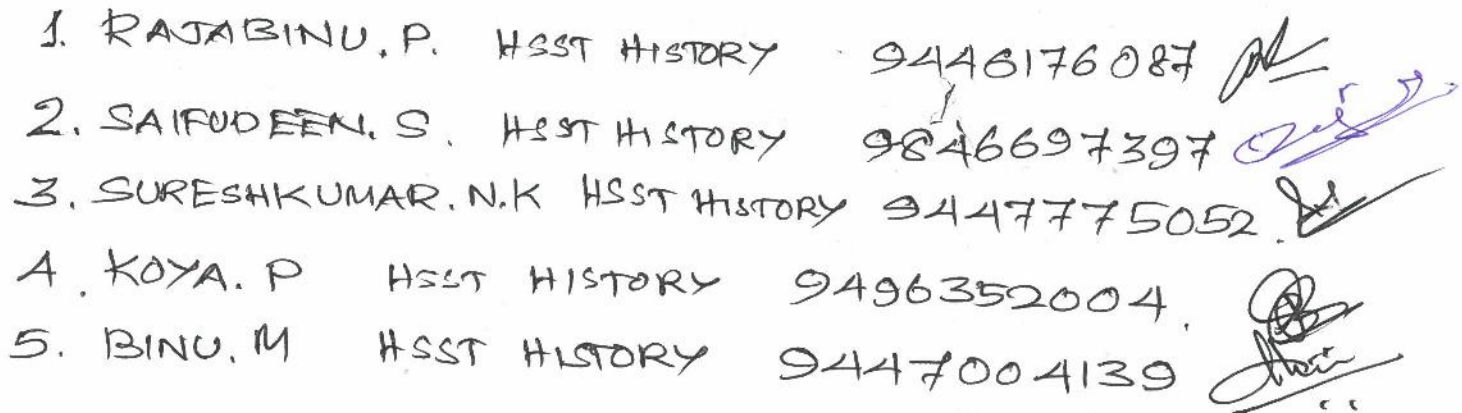 1. RAJABINU. P. HSST HISTORY 9446176087
2. SAIFUDEEN. S. HSST HISTORY 9846697397
3. SURESHKUMAR. N.K HSST HISTORY 9447775052.
4. KOYA. P HSST HISTORY 9496352004.
5. BINU. M HSST HISTORY 9447004139